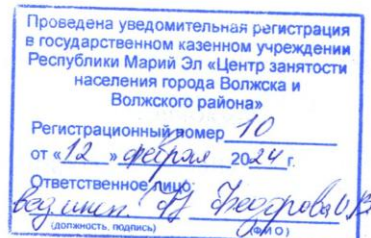 Проведена уведомительная регистрация
в государственном казенном учреждении
Республики Марий Эл «Центр занятости
населения города Волжска и
Волжского района»
Регистрационный номер 10
от «12» февраля 2024 г.
Ответственное лицо:
вед инсп Федорова И.В
(должность, подпись) (Ф И О)